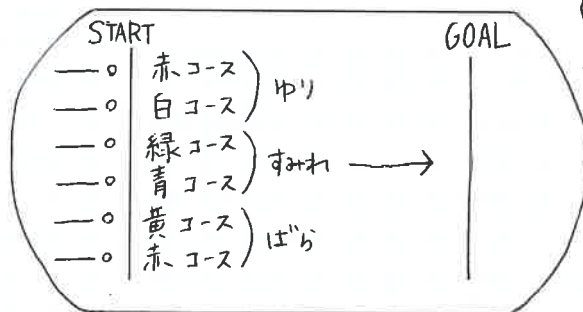 START
GOAL
赤コース
白コース
ゆり
緑コース
青コース
すみれ
黄コース
赤コース
ばら